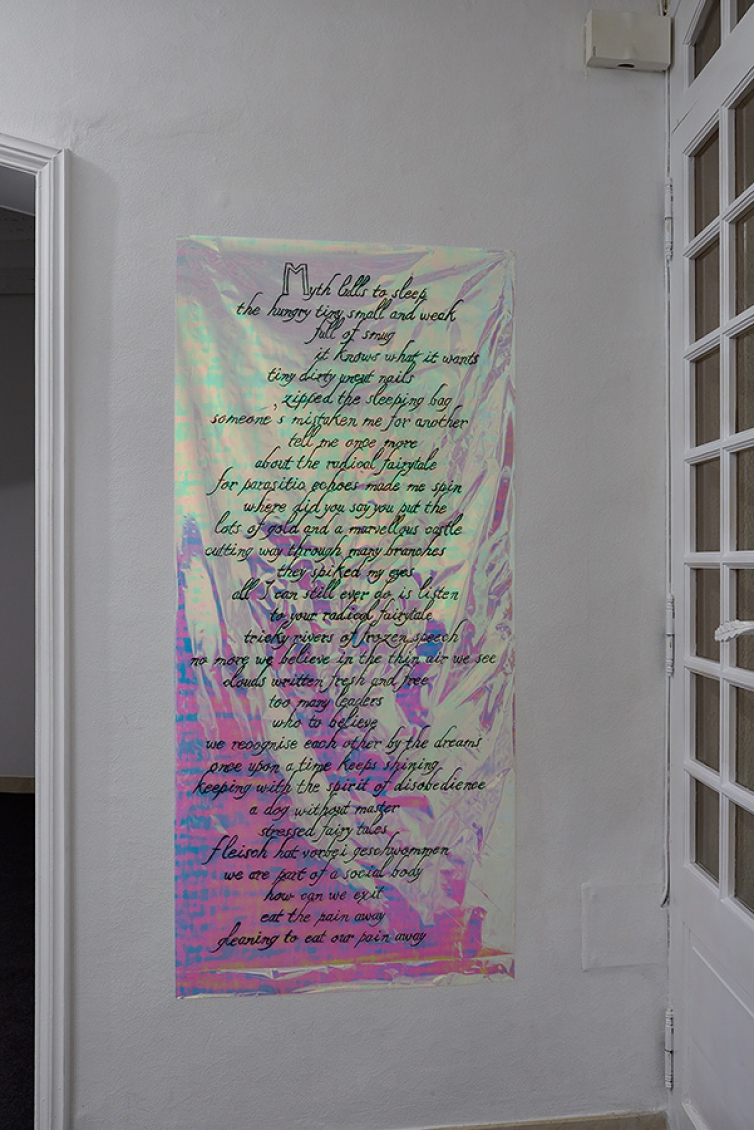 Myth lulls to sleep
the hungry tiny small and weak
full of smug
it knows what it wants
tiny dirty uncut nails
zipped the sleeping bag
someone's mistaken me for another
tell me once more
about the radical fairytale
for parasitic echoes made me spin
where did you say you put the
lots of gold and a marvellous castle
cutting way through many branches
they spiked my eyes
all I can still ever do is listen
to your radical fairytale
tricky rivers of frozen speech
no more we believe in the thin air we see
clouds written fresh and free
too many leaders
who to believe
we recognise each other by the dreams
once upon a time keeps shining
keeping with the spirit of disobedience
a dog without master
stressed fairy tales
fleisch hat vorbei geschwommen
we are part of a social body
how can we exit
eat the pain away
gleaning to eat our pain away